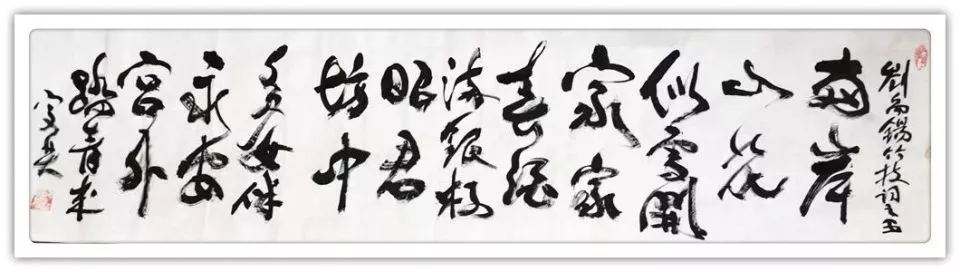 劉禹錫竹枝詞之五
兩岸
山花
似雪開
家家
春酒
滿銀杯
昭君
坊中
多女伴
永安
宮外
踏青來